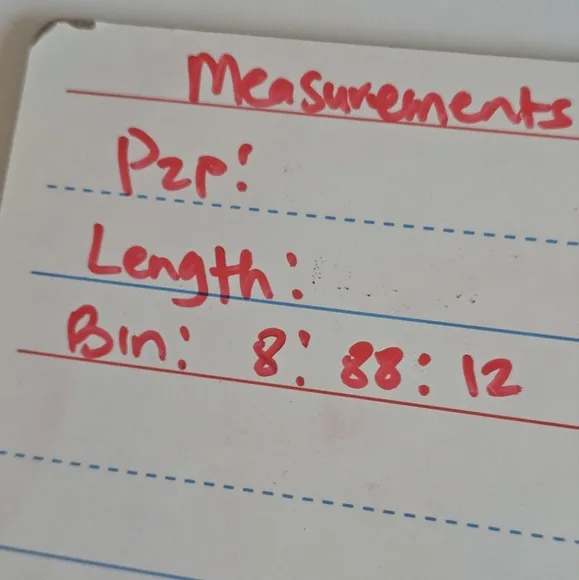 Measurements
P2P:
Length:
Bin: 8: 88: 12